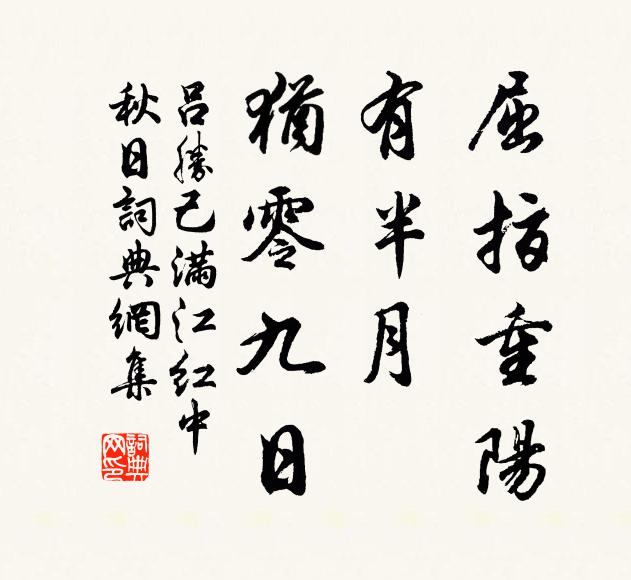 屈指重陽
有半月
猶零九日
呂勝己滿江紅中
秋日詞典網集
詞典網印